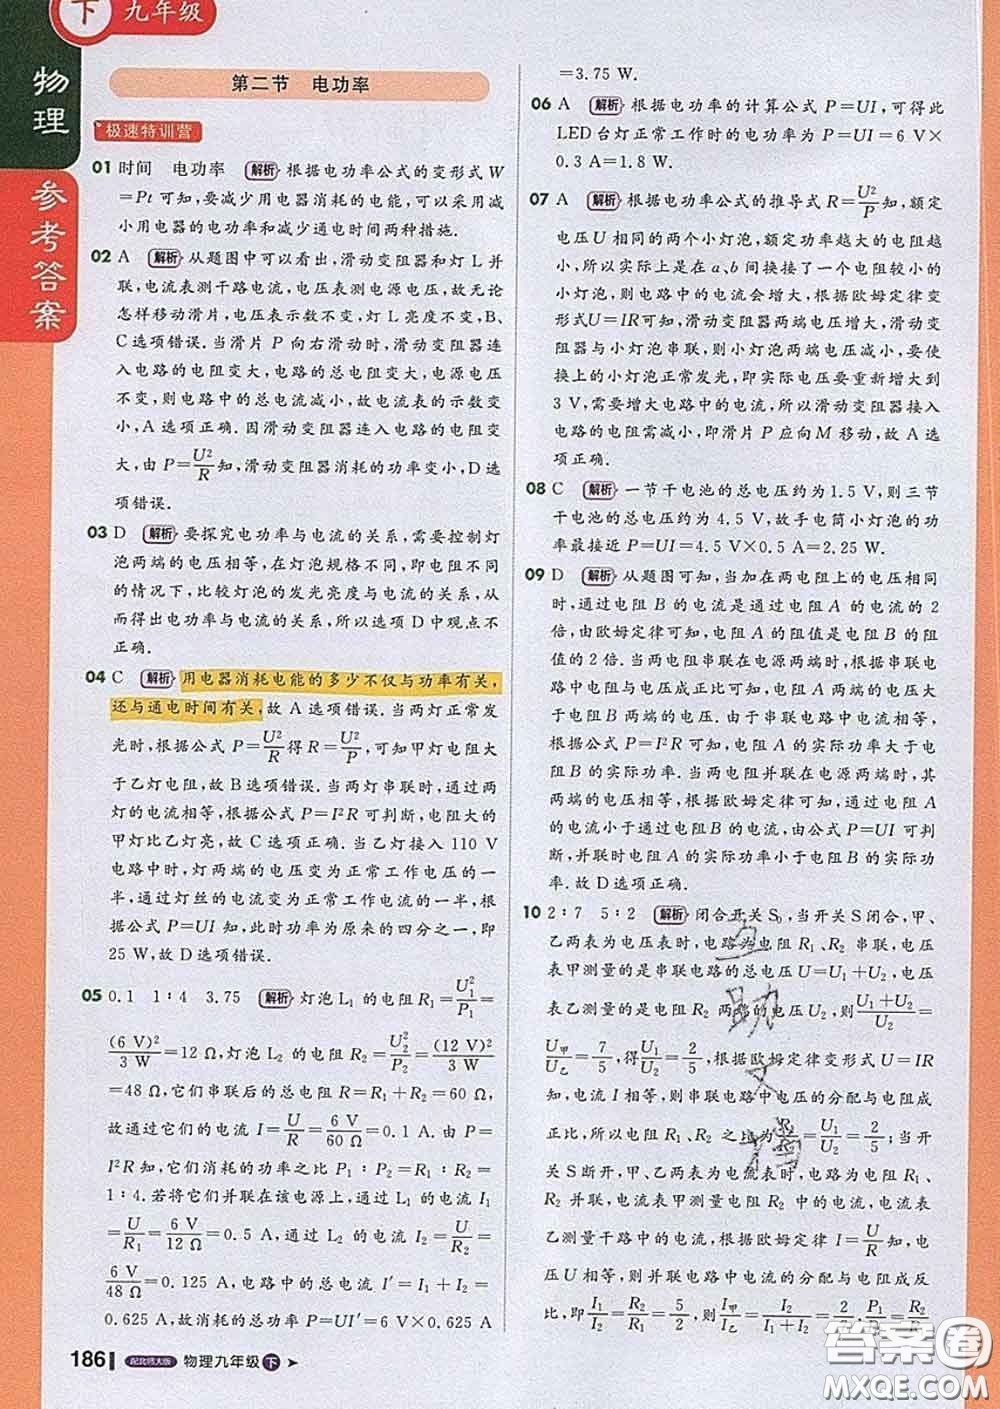 下 九年级
物理
参考答案
第二节 电功率
极速特训营
01 时间 电功率 解析 根据电功率公式的变形式 W
=Pt 可知,要减少用电器消耗的电能,可以采用减
小用电器的电功率和减少通电时间两种措施.
02 A 解析 从题图中可以看出,滑动变阻器和灯 L 并
联,电流表测干路电流,电压表测电源电压,故无论
怎样移动滑片,电压表示数不变,灯 L 亮度不变,B、
C 选项错误.当滑片 P 向右滑动时,滑动变阻器连
入电路的电阻变大,电路的总电阻变大,电源电压
不变,则电路中的总电流减小,故电流表的示数变
小,A 选项正确.因滑动变阻器连入电路的电阻变
大,由 P=U²/R 知,滑动变阻器消耗的功率变小,D 选
项错误.
03 D 解析 要探究电功率与电流的关系,需要控制灯
泡两端的电压相等,在灯泡规格不同,即电阻不同
的情况下,比较灯泡的发光亮度与电流的关系,从
而得出电功率与电流的关系,所以选项 D 中观点不
正确.
04 C 解析 用电器消耗电能的多少不仅与功率有关,
还与通电时间有关,故 A 选项错误.当两灯正常发
光时,根据公式 P=U²/R 得 R=U²/P,可知甲灯电阻大
于乙灯电阻,故 B 选项错误.当两灯串联时,通过两
灯的电流相等,根据公式 P=I²R 可判断,电阻大的
甲灯比乙灯亮,故 C 选项正确.当乙灯接入 110 V
电路中时,灯两端的电压变为正常工作电压的一
半,通过灯丝的电流变为正常工作电流的一半,根
据公式 P=UI 知,此时功率为原来的四分之一,即
25 W,故 D 选项错误.
05 0.1 1∶4 3.75 解析 灯泡 L₁ 的电阻 R₁=U₁²/P₁=
(6 V)²/3 W=12 Ω,灯泡 L₂ 的电阻 R₂=U₂²/P₂=(12 V)²/3 W
=48 Ω,它们串联后的总电阻 R=R₁+R₂=60 Ω,
故通过它们的电流 I=U/R=6 V/60 Ω=0.1 A.由 P=
I²R 知,它们消耗的功率之比 P₁∶P₂=R₁∶R₂=
1∶4.若将它们并联在该电源上,通过 L₁ 的电流 I₁
=U/R₁=6 V/12 Ω=0.5 A,通过 L₂ 的电流 I₂=U/R₂=
6 V/48 Ω=0.125 A,电路中的总电流 I′=I₁+I₂=
0.625 A,故总功率 P=UI′=6 V×0.625 A
=3.75 W.
06 A 解析 根据电功率的计算公式 P=UI,可得此
LED 台灯正常工作时的电功率为 P=UI=6 V×
0.3 A=1.8 W.
07 A 解析 根据电功率公式的推导式 R=U²/P 知,额定
电压 U 相同的两个小灯泡,额定功率大的电阻较
小,所以实际上是在 a、b 间换接了一个电阻较小的
小灯泡,则电路中的电流会增大,根据欧姆定律变
形式 U=IR 可知,滑动变阻器两端电压增大,滑动变
阻器与小灯泡串联,则小灯泡两端电压减小,要使
换上的小灯泡正常发光,即实际电压要重新增大到
3 V,需要增大电路中的电流,所以滑动变阻器接入
电路的电阻需减小,即滑片 P 应向 M 移动,故 A
选项正确.
08 C 解析 一节干电池的总电压约为 1.5 V,则三节
干电池的总电压约为 4.5 V,故手电筒小灯泡的功
率最接近 P=UI=4.5 V×0.5 A=2.25 W.
09 D 解析 从题图可知,当加在两电阻上的电压相同
时,通过电阻 B 的电流是通过电阻 A 的电流的 2
倍,由欧姆定律可知,电阻 A 的阻值是电阻 B 的阻
值的 2 倍.当两电阻串联在电源两端时,由串联电路
中电压与电阻成正比可知,电阻 A 两端的电压大于
电阻 B 两端的电压.由于串联电路中电流相等,
根据 P=I²R 可知,电阻 A 的实际功率大于电阻
B 的实际功率.当两电阻并联在电源两端时,其
两端的电压相等,根据欧姆定律可知,通过电阻 A
的电流小于通过电阻 B 的电流,由公式 P=UI 可判
断,并联时电阻 A 的实际功率小于电阻 B 的实际功
率.故 D 选项正确.
10 2∶7 5∶2 解析 闭合开关 S₀,当开关 S 闭合,甲、
乙两表为电压表时,电路为电阻 R₁、R₂ 串联,电压
表甲测量的是串联电路的总电压 U=U₁+U₂,电压
表乙测量的是 R₂ 两端的电压 U₂,则(U₁+U₂)/U₂=
U甲/U乙=7/5,得 U₁/U₂=2/5,根据欧姆定律变形式 U=IR
知,电流 I 相等,则串联电路中电压的分配与电阻成
正比,所以电阻 R₁、R₂ 之比为 R₁/R₂=U₁/U₂=2/5;当开
关 S 断开,甲、乙两表为电流表时,电阻 R₁、电阻 R₂
并联,电流表甲测量电阻 R₂ 中的电流,电流表
乙测量干路中的电流,根据欧姆定律 I=U/R 知,电
压 U 相等,则并联电路中电流的分配与电阻成反
比,即 I₁/I₂=R₂/R₁=5/2,则 I甲/I乙=I₂/(I₁+I₂)=2/7,P₁/P₂=R₂/R₁
186 配北师大版 物理九年级 下
互助文档
答案圈
MXQE.COM